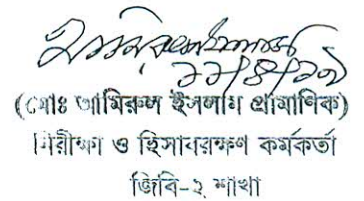 ১১/৪/১৩
(মোঃ আমিরুল ইসলাম প্রামাণিক)
নিরীক্ষা ও হিসাবরক্ষণ কর্মকর্তা
জিবি-২ শাখা